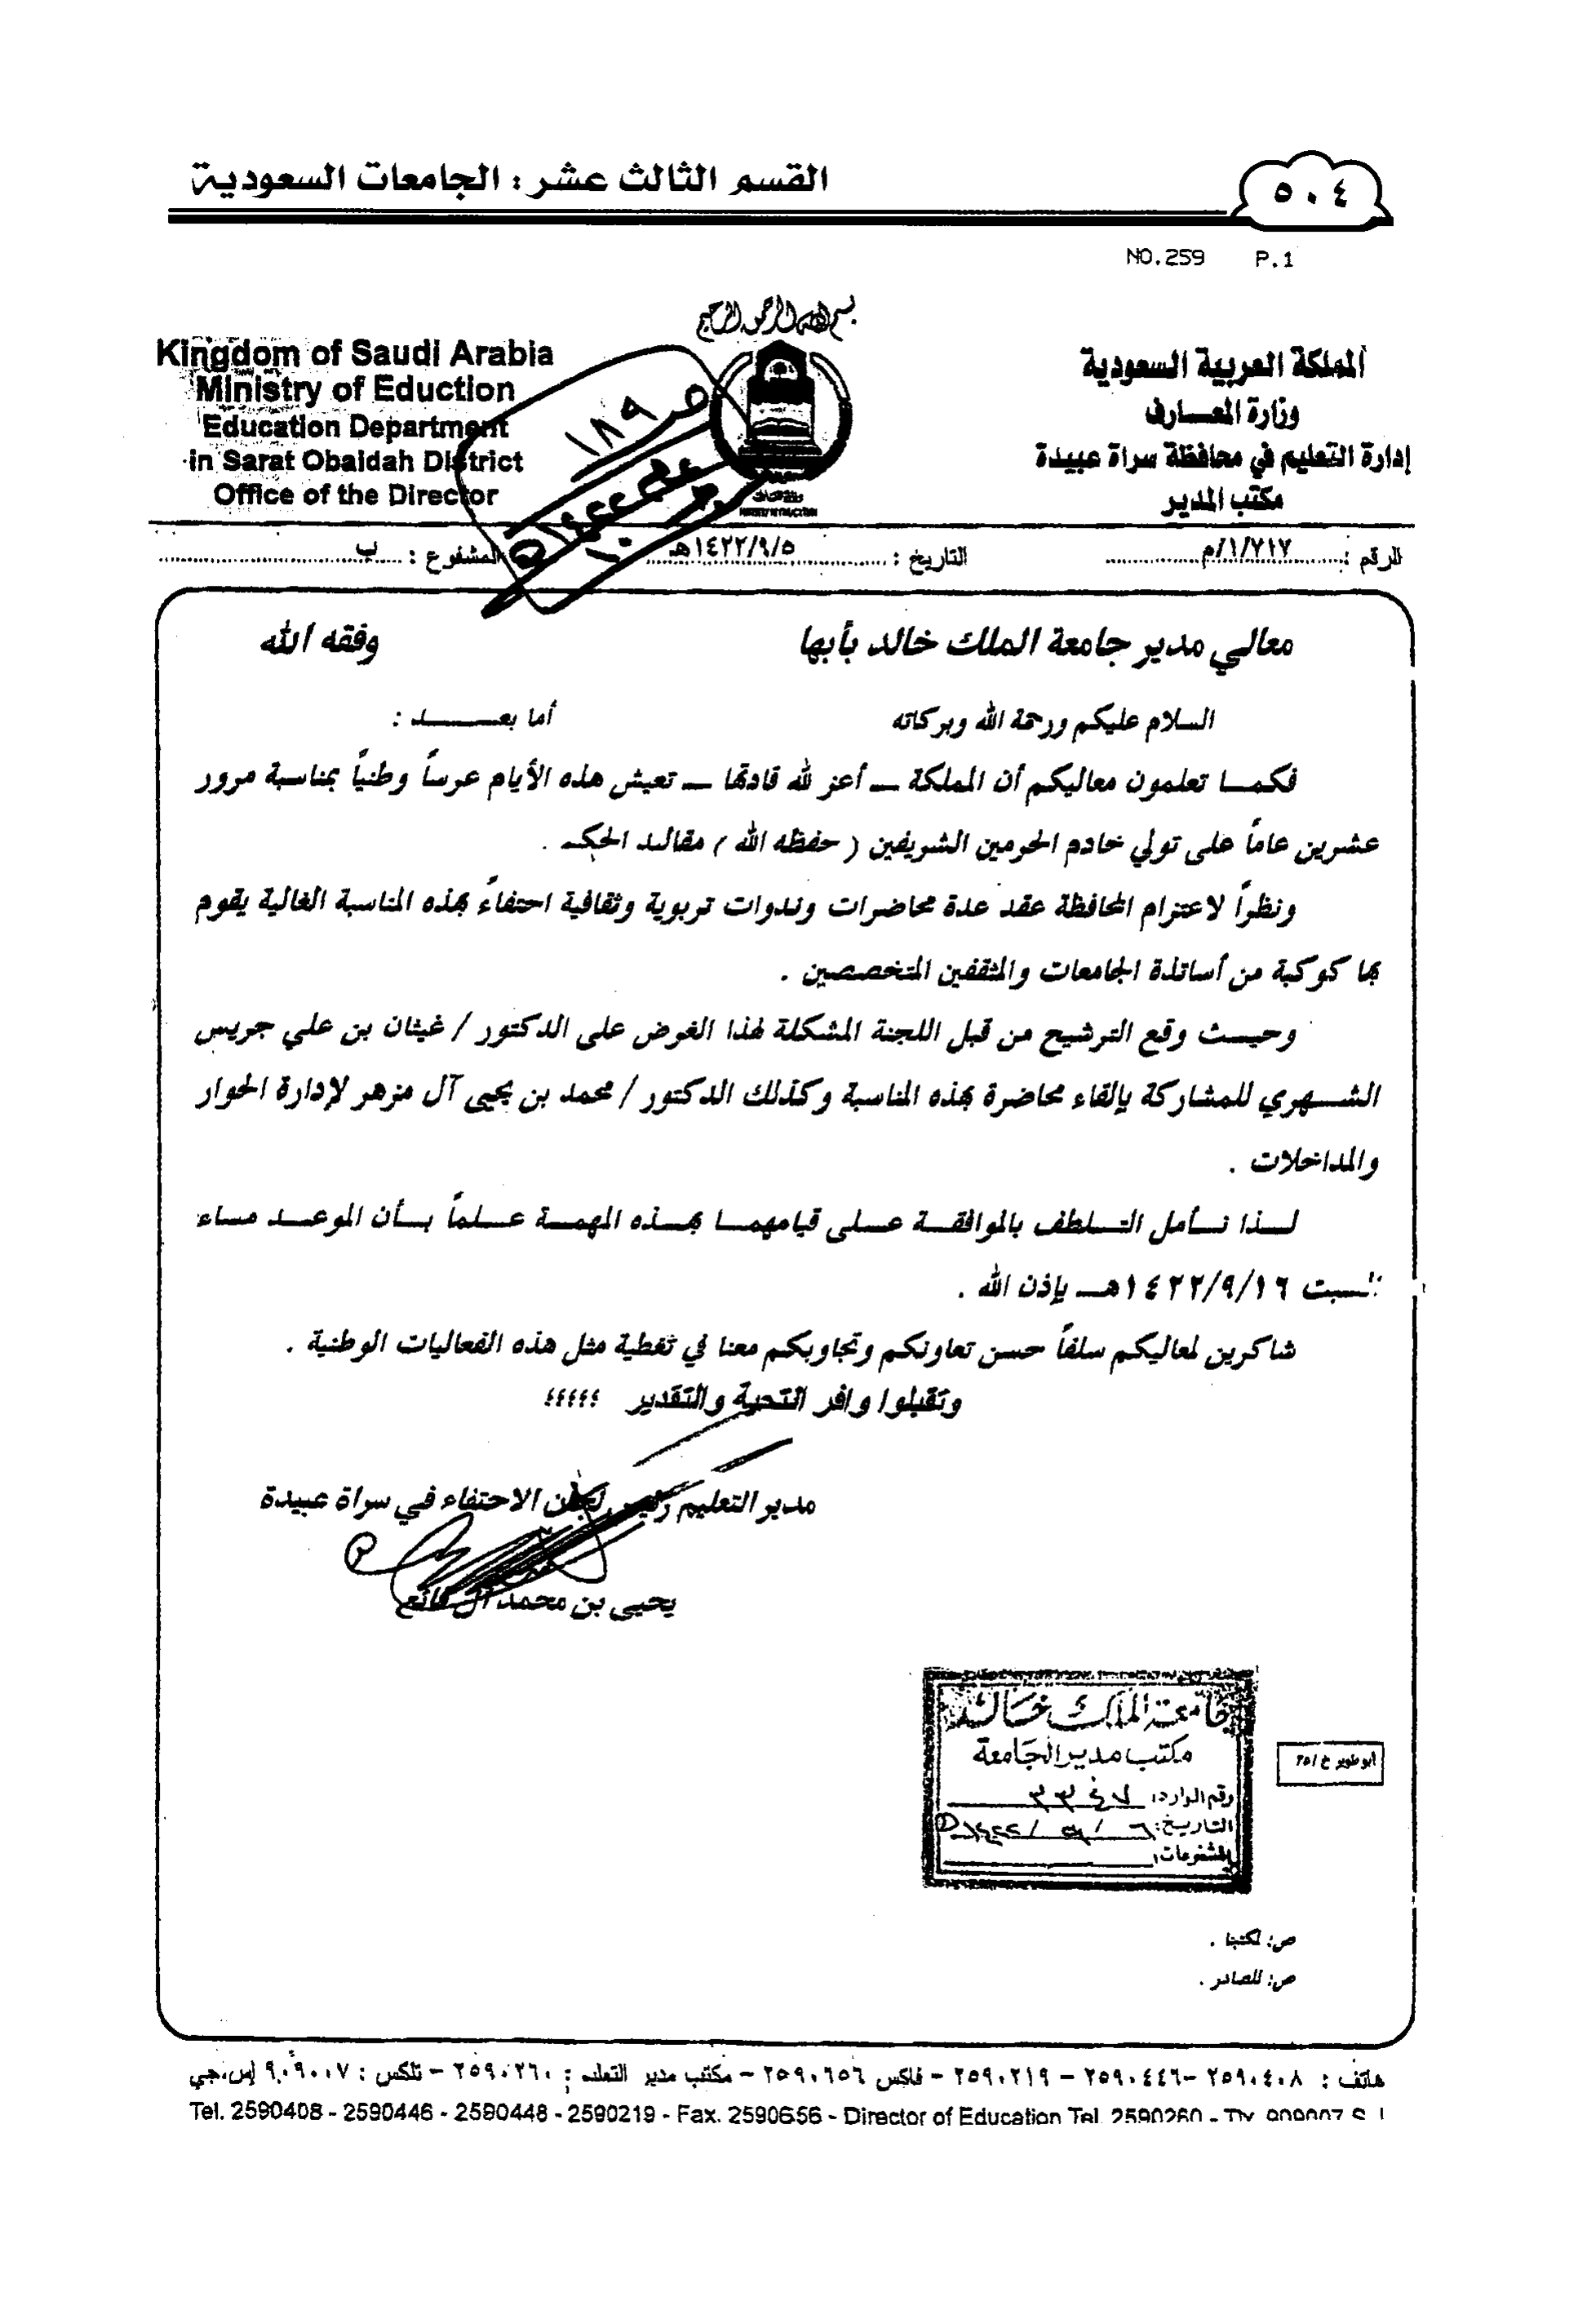 القسم الثالث عشر : الجامعات السعودية
٥٠٤
NO.259 P.1
بسم الله الرحمن الرحيم
المملكة العربية السعودية
وزارة المعارف
إدارة التعليم في محافظة سراة عبيدة
مكتب المدير
Kingdom of Saudi Arabia
Ministry of Eduction
Education Department
in Sarat Obaidah District
Office of the Director
ص ١٨٩
الرقم : ١/٧١٧/م التاريخ : ١٤٢٢/٩/٥هـ المشفوع : ب
معالي مدير جامعة الملك خالد بأبها وفقه الله
السلام عليكم ورحمة الله وبركاته أما بعد :
فكما تعلمون معاليكم أن المملكة – أعز لله قادتها – تعيش هذه الأيام عرساً وطنياً بمناسبة مرور
عشرين عاماً على تولي خادم الحرمين الشريفين ( حفظه الله ) مقاليد الحكم .
ونظراً لاعتزام المحافظة عقد عدة محاضرات وندوات تربوية وثقافية احتفاءً بهذه المناسبة الغالية يقوم
بها كوكبة من أساتذة الجامعات والمثقفين المتخصصين .
وحيث وقع الترشيح من قبل اللجنة المشكلة لهذا الغرض على الدكتور / غيثان بن علي جريس
الشهري للمشاركة بإلقاء محاضرة بهذه المناسبة وكذلك الدكتور / محمد بن يحيى آل مزهر لإدارة الحوار
والمداخلات .
لذا نأمل التلطف بالموافقة على قيامهما بهذه المهمة علماً بأن الموعد مساء
السبت ١٤٢٢/٩/١٦هـ بإذن الله .
شاكرين لمعاليكم سلفاً حسن تعاونكم وتجاوبكم معنا في تغطية مثل هذه الفعاليات الوطنية .
وتقبلوا وافر التحية والتقدير ؛؛؛؛؛
مدير التعليم رئيس لجان الاحتفاء في سراة عبيدة
يحيى بن محمد آل فائع
جامعة الملك خالد
مكتب مدير الجامعة
رقم الوارد: ٣٣٤٧
التاريخ: ٦ / ٩ / ١٤٢٢
المشفوعات:
أبو طوير خ/٢٥
ص: لمكتبنا .
ص: للصادر .
هاتف : ٢٥٩٠٤٠٨ – ٢٥٩٠٤٤٦ – ٢٥٩٠٢١٩ – فاكس ٢٥٩٠٦٥٦ – مكتب مدير التعليم : ٢٥٩٠٢٦٠ – تلكس : ٩٠٩٠٠٧ إس.جي
Tel. 2590408 - 2590446 - 2590448 - 2590219 - Fax. 2590656 - Director of Education Tel. 2590260 - Tlx. 909007 S.J